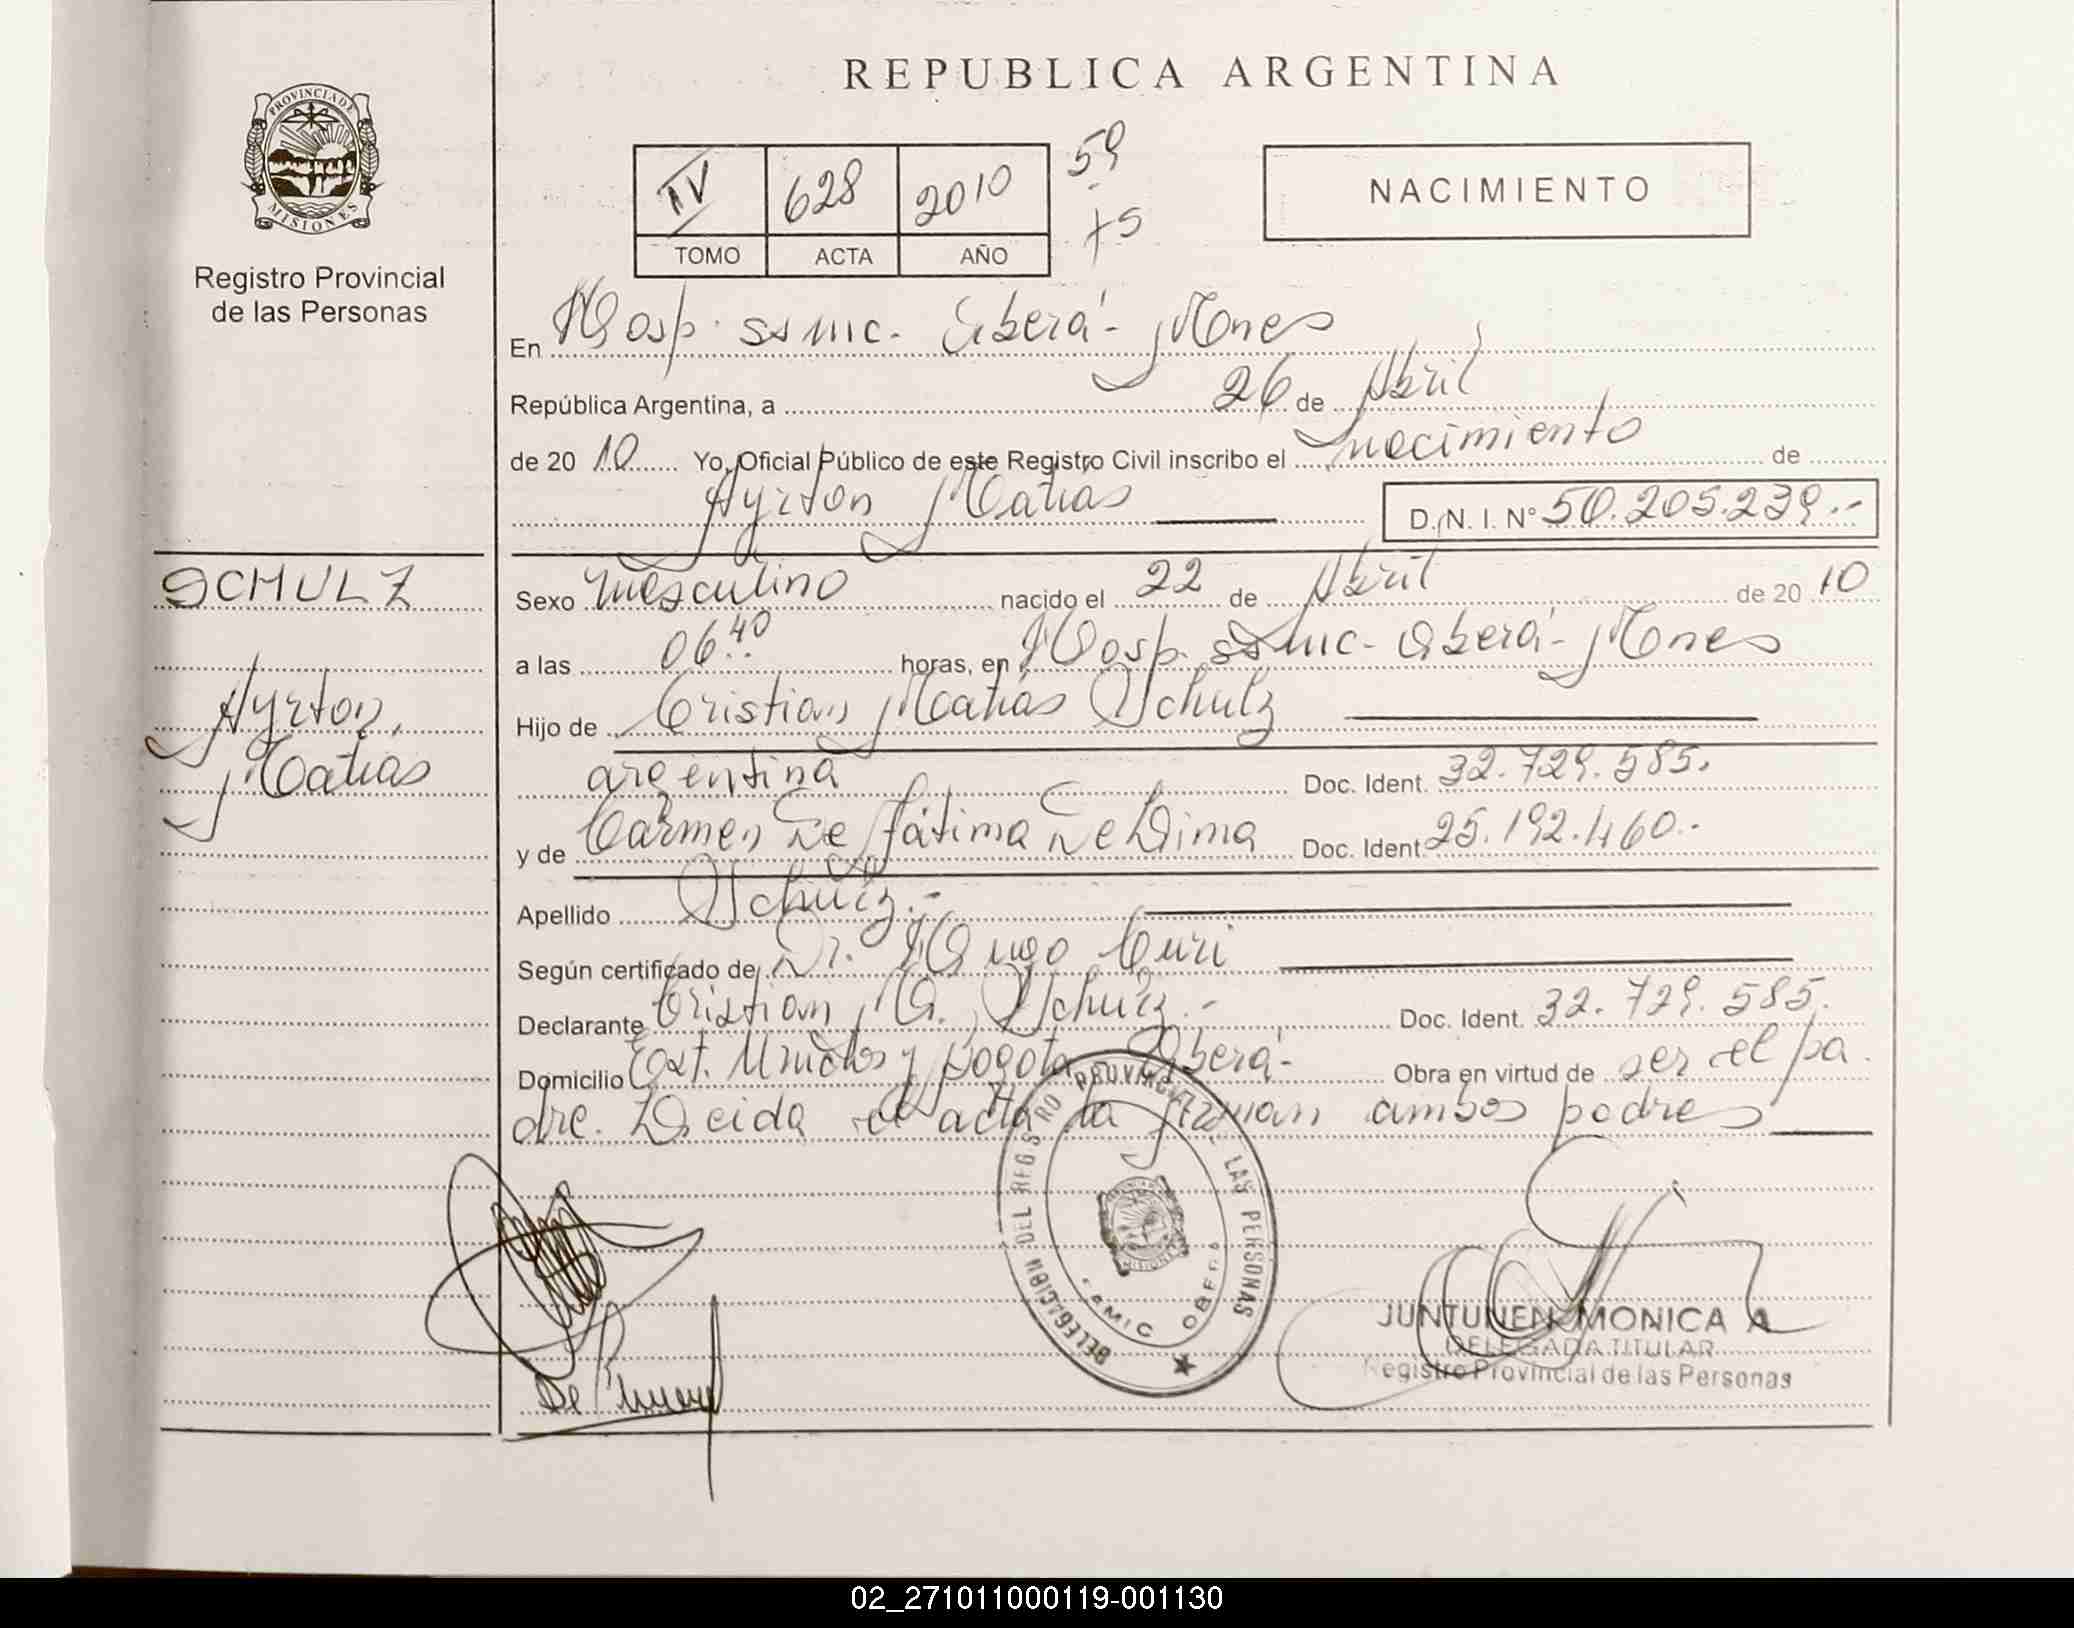 REPUBLICA ARGENTINA
PROVINCIA DE
MISIONES
Registro Provincial
de las Personas
IV 628 2010 59
TOMO ACTA AÑO +5
NACIMIENTO
En Hosp. ssmic. Oberá - Mnes
República Argentina, a 26 de Abril
de 2010 Yo, Oficial Público de este Registro Civil inscribo el nacimiento de
Ayrton Matias D. N. I. N° 50.205.239.-
SCHULZ
Ayrton
Matias
Sexo masculino nacido el 22 de Abril de 2010
a las 06.40 horas, en Hosp. ssmic - Oberá - Mnes
Hijo de Cristian Matias Schulz
argentina Doc. Ident. 32.729.585.
y de Carmen De Fátima De Lima Doc. Ident. 25.192.460.-
Apellido Schulz.-
Según certificado de Dr. Hugo Curi
Declarante Cristian M. Schulz.- Doc. Ident. 32.729.585.
Domicilio Ext. y Bogota Oberá - Obra en virtud de ser el pa
dre. Leida el acta la firman ambos padres
DELEGACION DEL REGISTRO PROVINCIAL LAS PERSONAS
SAMIC OBERA
JUNTUNEN MONICA A
DELEGADA TITULAR
Registro Provincial de las Personas
02_271011000119-001130